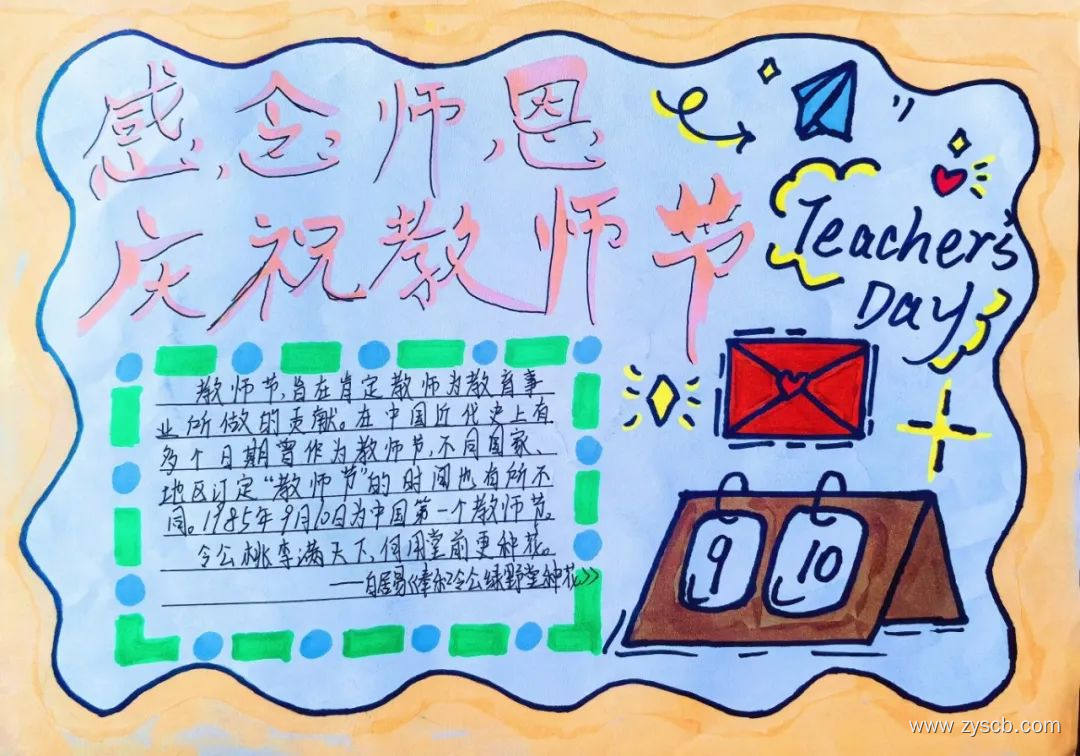 感念师恩
庆祝教师节
Teacher's
Day
教师节,旨在肯定教师为教育事
业所做的贡献。在中国近代史上有
多个日期曾作为教师节,不同国家、
地区订定“教师节”的时间也有所不
同。1985年9月10日为中国第一个教师节。
令公桃李满天下,何用堂前更种花。
——白居易《奉和令公绿野堂种花》
9
10
www.zyscb.com